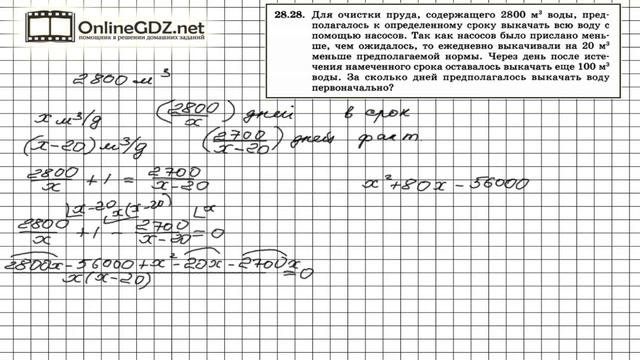 OnlineGDZ.net
помощники в решении домашних заданий
28.28. Для очистки пруда, содержащего 2800 м³ воды, пред-
полагалось к определенному сроку выкачать всю воду с
помощью насосов. Так как насосов было прислано мень-
ше, чем ожидалось, то ежедневно выкачивали на 20 м³
меньше предполагаемой нормы. Через день после исте-
чения намеченного срока оставалось выкачать еще 100 м³
воды. За сколько дней предполагалось выкачать воду
первоначально?
2800 м³
x м³/д (2800/x) дней в срок
(x-20) м³/д (2700/x-20) дней факт
2800/x + 1 = 2700/x-20
x²+80x-56000
x-20 x(x-20) x
2800/x + 1 - 2700/x-20 = 0
2800x-56000+x²-20x-2700x/x(x-20) = 0